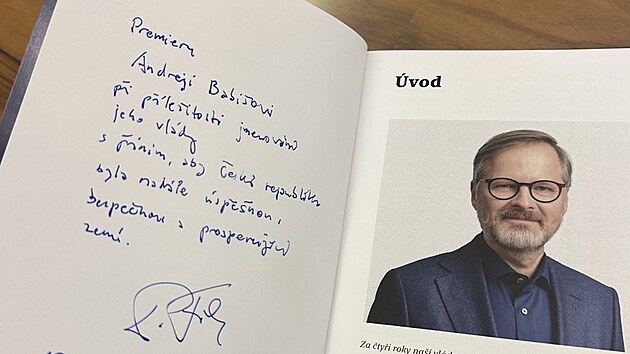 Premieru
Andreji Babišovi
při příležitosti jmenování
jeho vlády
s přáním, aby Česká republika
byla nadále úspěšnou,
bezpečnou a prosperující
zemí.
Úvod
Za čtyři roky naší